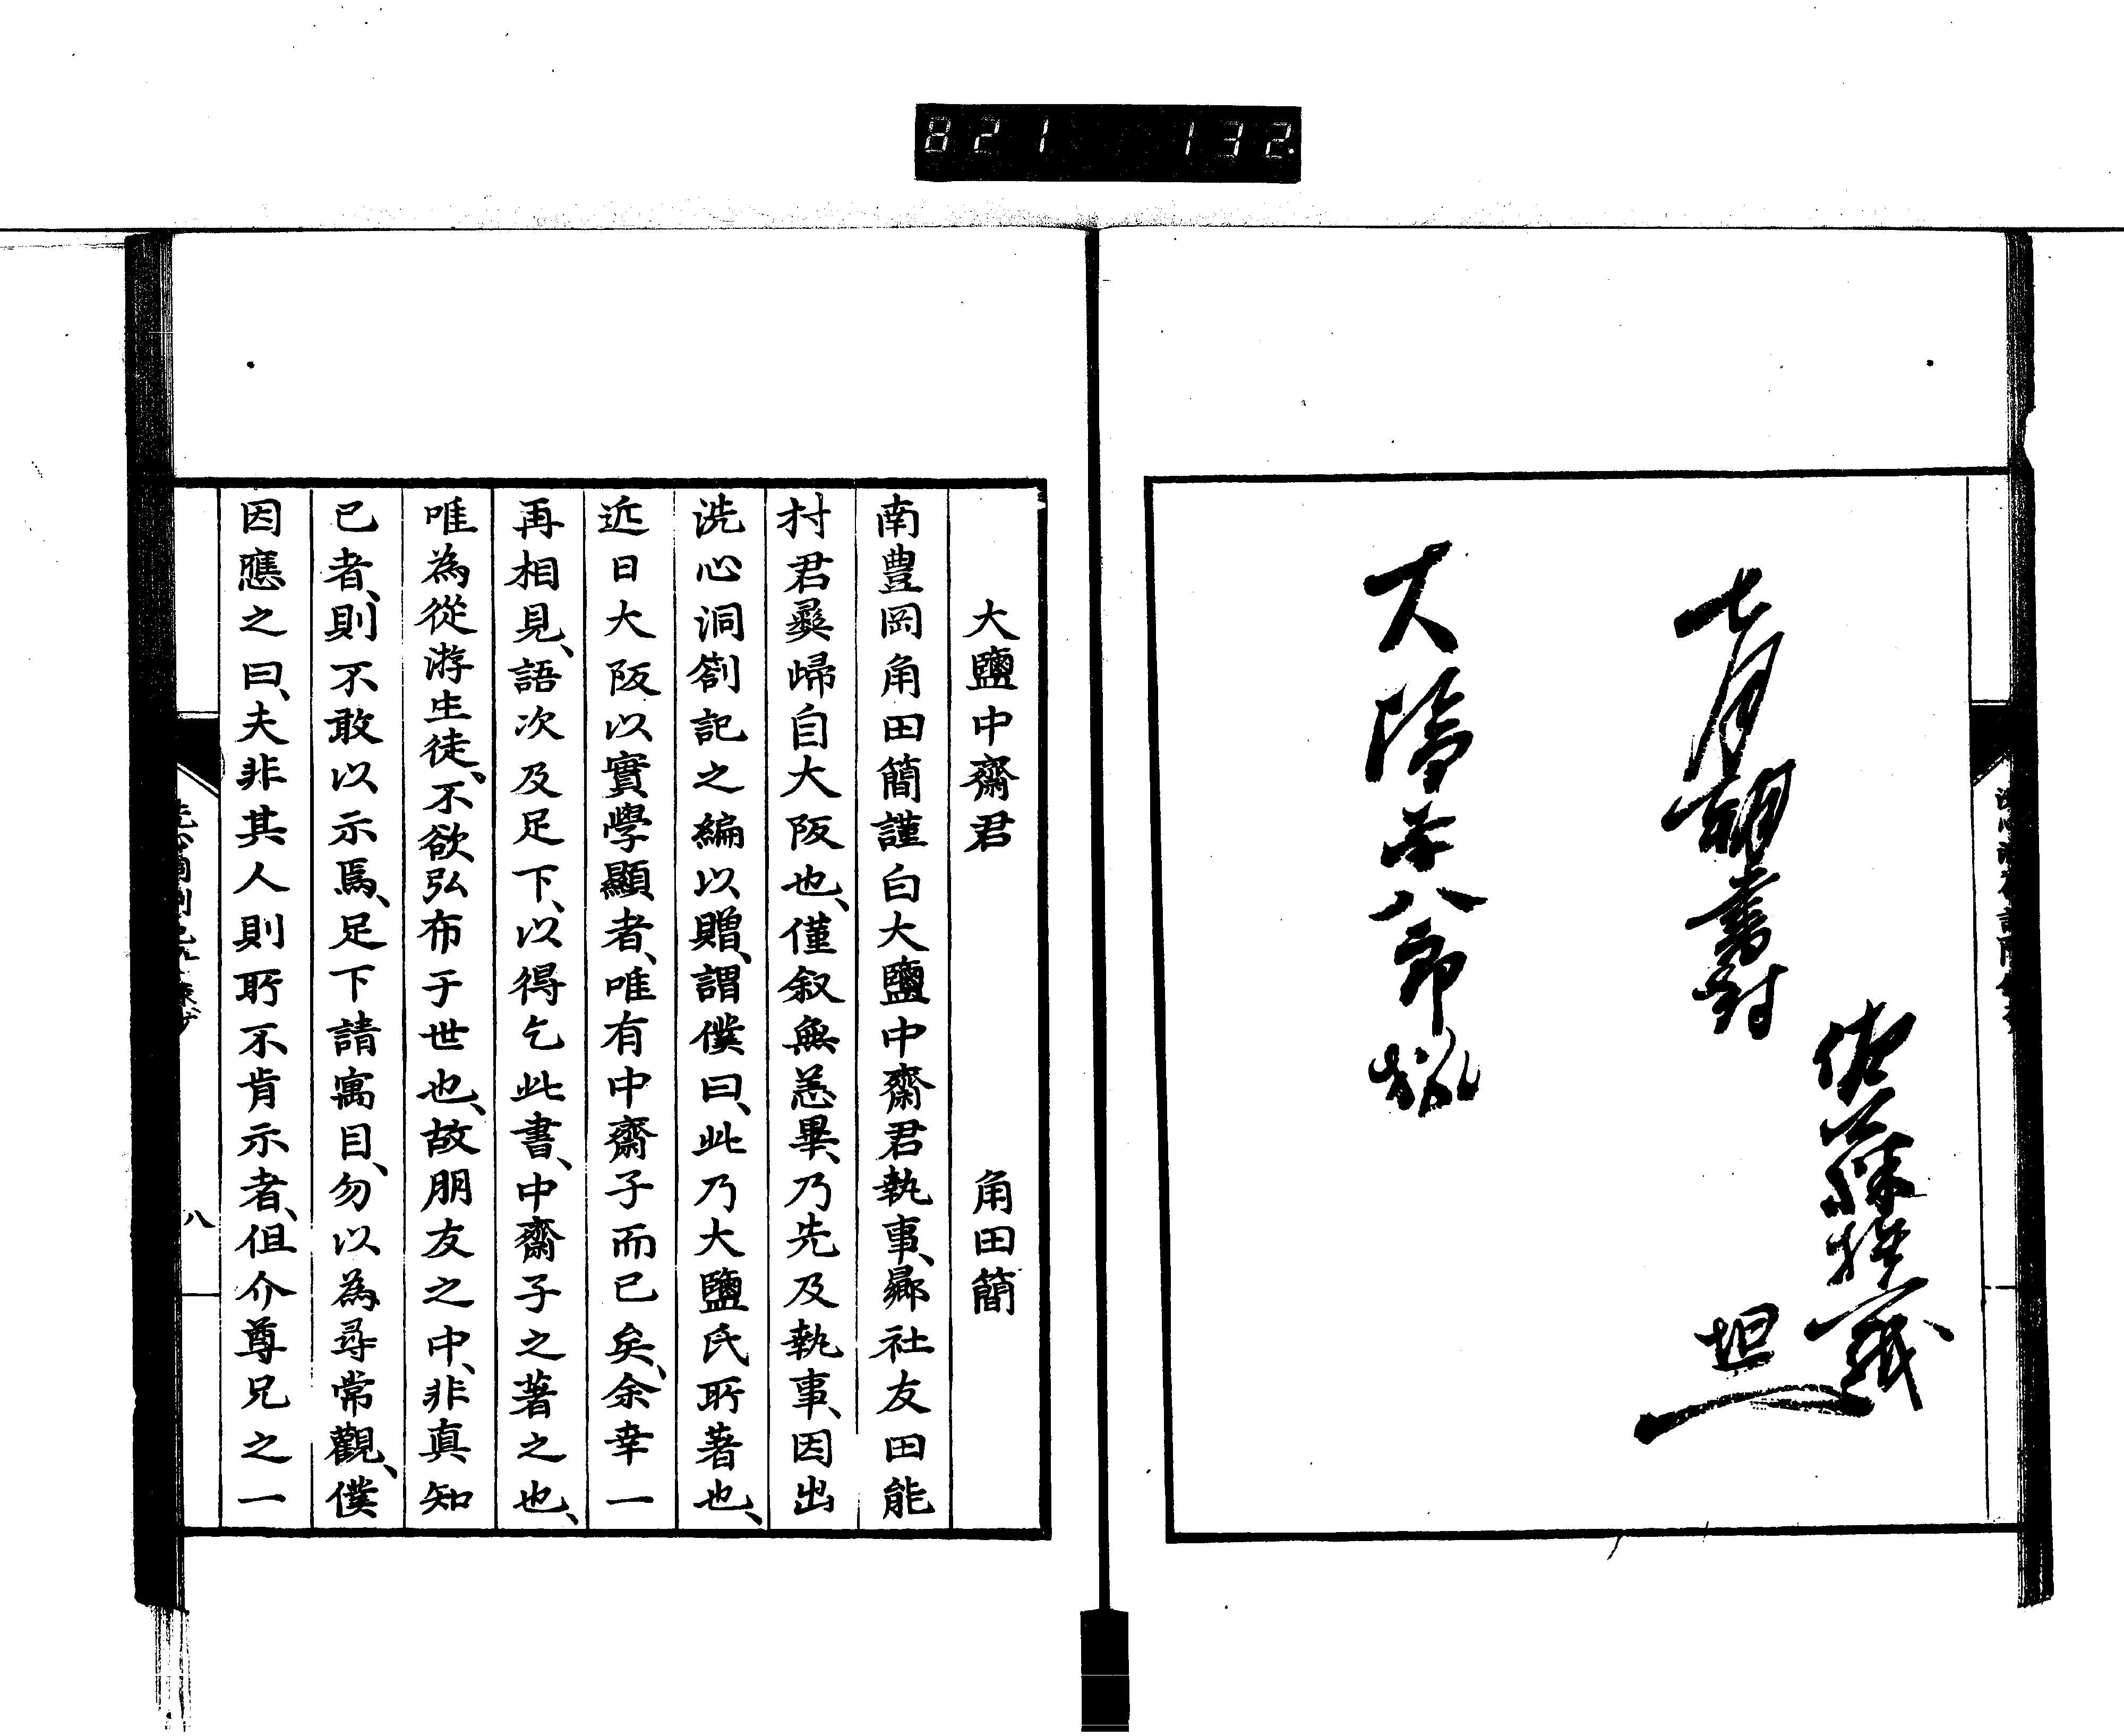 821 132.
佐藤捨藏
坦
七月朔書封
大塩平八郎様
大鹽中齋君　角田簡
南豊岡角田簡謹白大鹽中齋君執事、鄉社友田能
村君彝歸自大阪也、僅叙無恙畢、乃先及執事、因出
洗心洞劄記之編以贈、謂僕曰、此乃大鹽氏所著也、
近日大阪以實學顯者、唯有中齋子而已矣、余幸一
再相見、語次及足下、以得乞此書、中齋子之著之也、
唯為從游生徒、不欲弘布于世也、故朋友之中、非真知
己者、則不敢以示焉、足下請寓目、勿以為尋常觀、僕
因應之曰、夫非其人則所不肯示者、但介尊兄之一
八